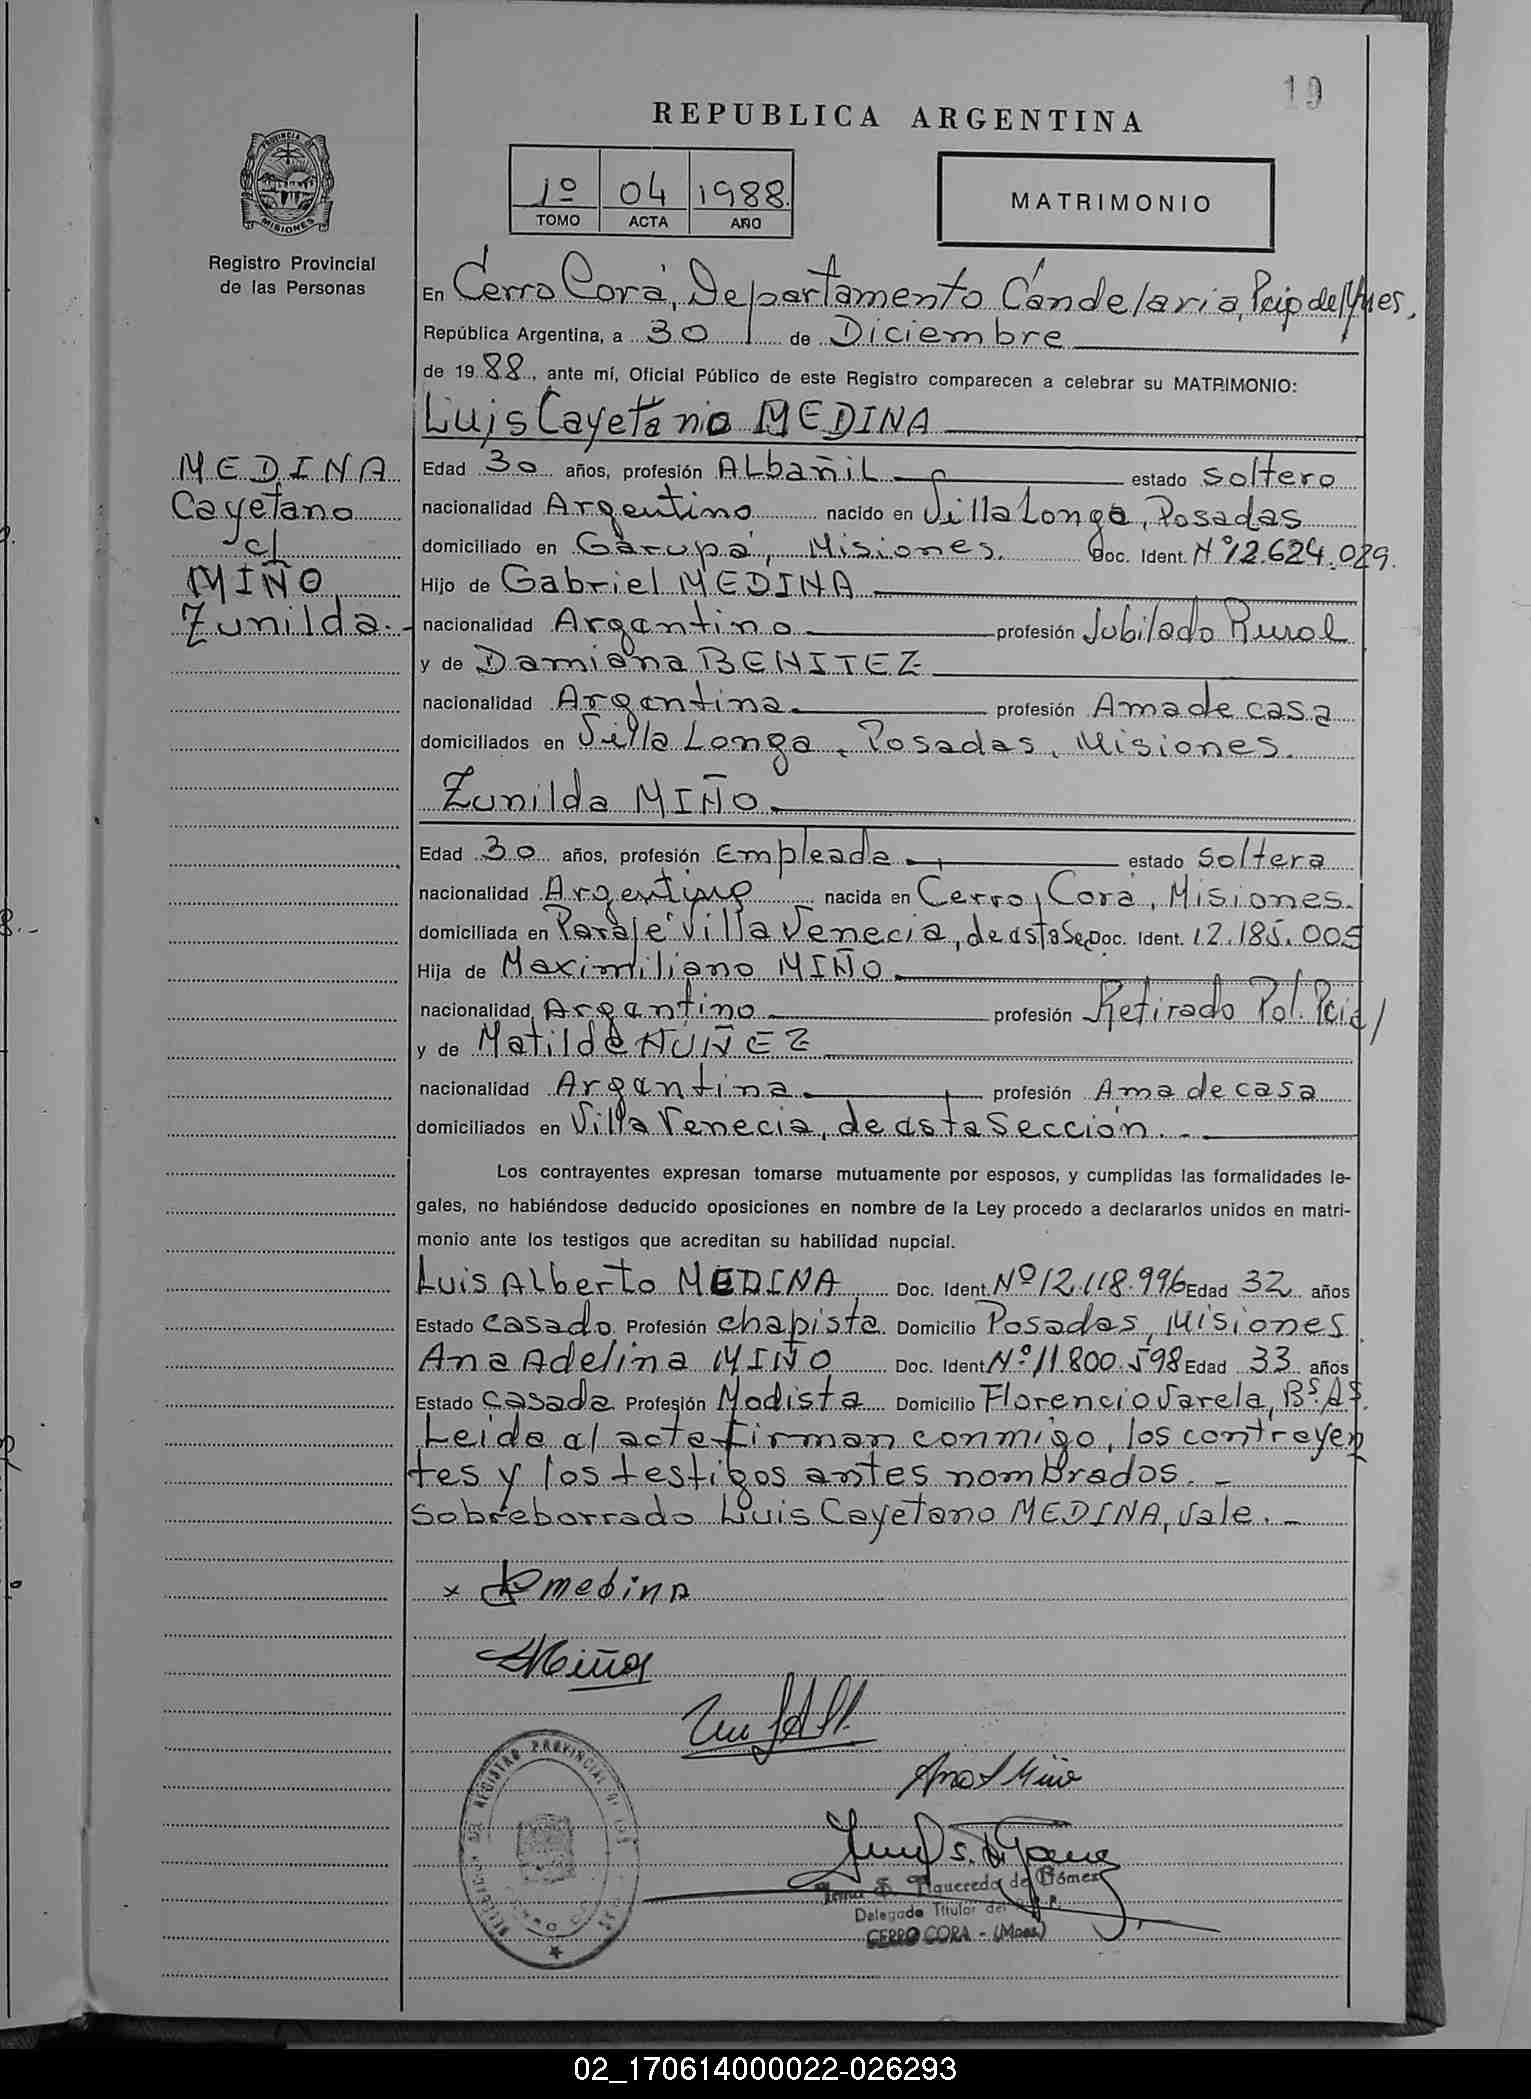 19
REPUBLICA ARGENTINA
PROVINCIA DE
MISIONES
Registro Provincial
de las Personas
1º 04 1988
TOMO ACTA AÑO
MATRIMONIO
En Cerro Corá, Departamento Candelaria, Pcip de Mnes.
República Argentina, a 30 de Diciembre
de 1988, ante mí, Oficial Público de este Registro comparecen a celebrar su MATRIMONIO:
Luis Cayetano MEDINA
MEDINA
Cayetano
c/
MIÑO
Zunilda.-
Edad 30 años, profesión Albañil estado soltero
nacionalidad Argentino nacido en Villa Longa, Posadas
domiciliado en Garupá, Misiones. Doc. Ident. Nº 12.624.029.
Hijo de Gabriel MEDINA
nacionalidad Argentino profesión Jubilado Rural
y de Damiana BENITEZ
nacionalidad Argentina profesión Ama de casa
domiciliados en Villa Longa, Posadas, Misiones.
Zunilda MIÑO
Edad 30 años, profesión Empleada estado soltera
nacionalidad Argentina nacida en Cerro Corá, Misiones.
domiciliada en Paraje Villa Venecia, de esta Sec Doc. Ident. 12.185.005
Hija de Maximiliano MIÑO
nacionalidad Argentino profesión Retirado Pol. Pcial
y de Matilde NÚÑEZ
nacionalidad Argentina profesión Ama de casa
domiciliados en Villa Venecia, de esta Sección.-
Los contrayentes expresan tomarse mutuamente por esposos, y cumplidas las formalidades le-
gales, no habiéndose deducido oposiciones en nombre de la Ley procedo a declararlos unidos en matri-
monio ante los testigos que acreditan su habilidad nupcial.
Luis Alberto MEDINA Doc. Ident. Nº 12.118.996 Edad 32 años
Estado casado Profesión chapista. Domicilio Posadas, Misiones
Ana Adelina MIÑO Doc. Ident Nº 11.800.598 Edad 33 años
Estado casada Profesión Modista Domicilio Florencio Varela, Bs. As.
Leida el acta firman conmigo, los contrayen
tes y los testigos antes nombrados.-
Sobreborrado Luis Cayetano MEDINA, vale.-
x medina
Miño
Ana Miño
Figueredo de Gómez
Delegada Titular del
CERRO CORA - (Mnes)
02_170614000022-026293